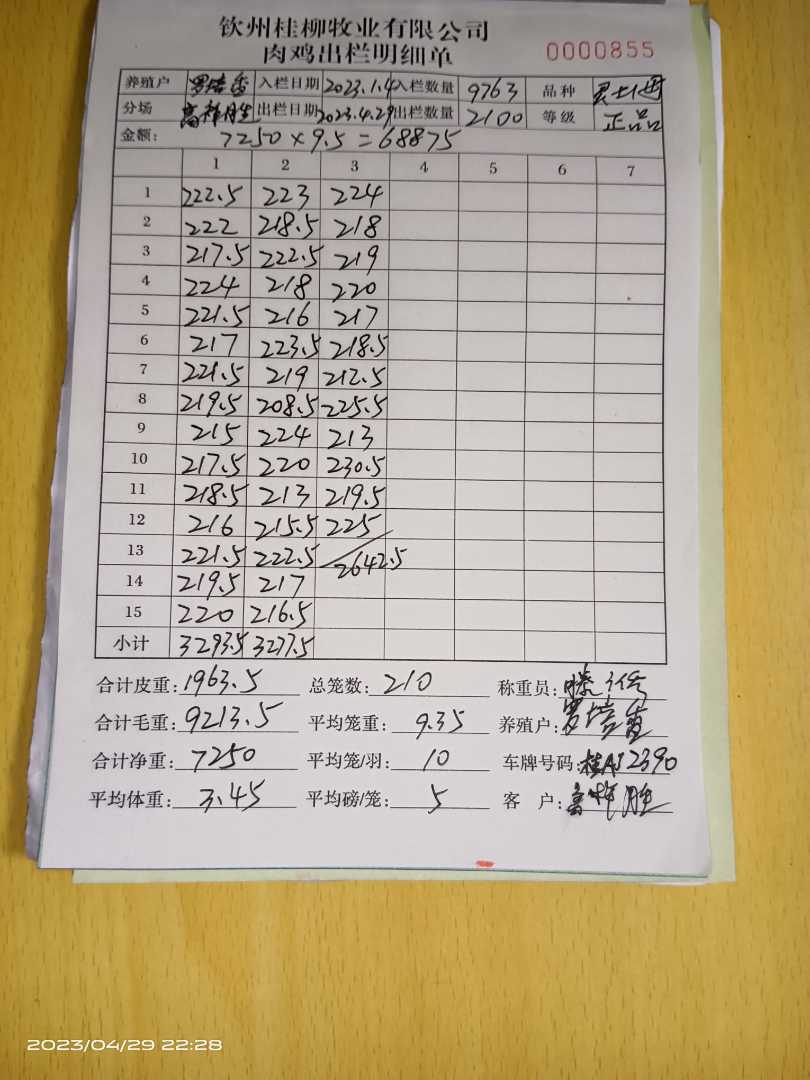 钦州桂柳牧业有限公司
肉鸡出栏明细单 0000855
养殖户 罗培香 入栏日期 2023.1.4 入栏数量 9763 品种 灵士博
分场 出栏日期 2023.4.29 出栏数量 2100 等级 正品
金额: 7250×9.5=68875
1 2 3 4 5 6 7
1 222.5 223 224
2 222 218.5 218
3 217.5 222.5 219
4 224 218 220
5 221.5 216 217
6 217 223.5 218.5
7 221.5 219 212.5
8 219.5 208.5 225.5
9 215 224 213
10 217.5 220 230.5
11 218.5 213 219.5
12 216 215.5 225
13 221.5 222.5 2642.5
14 219.5 217
15 220 216.5
小计 3293.5 3277.5
合计皮重: 1963.5 总笼数: 210 称重员:
合计毛重: 9213.5 平均笼重: 9.35 养殖户: 罗培香
合计净重: 7250 平均笼/羽: 10 车牌号码: 桂AJ2390
平均体重: 3.45 平均磅/笼: 5 客 户:
2023/04/29 22:28